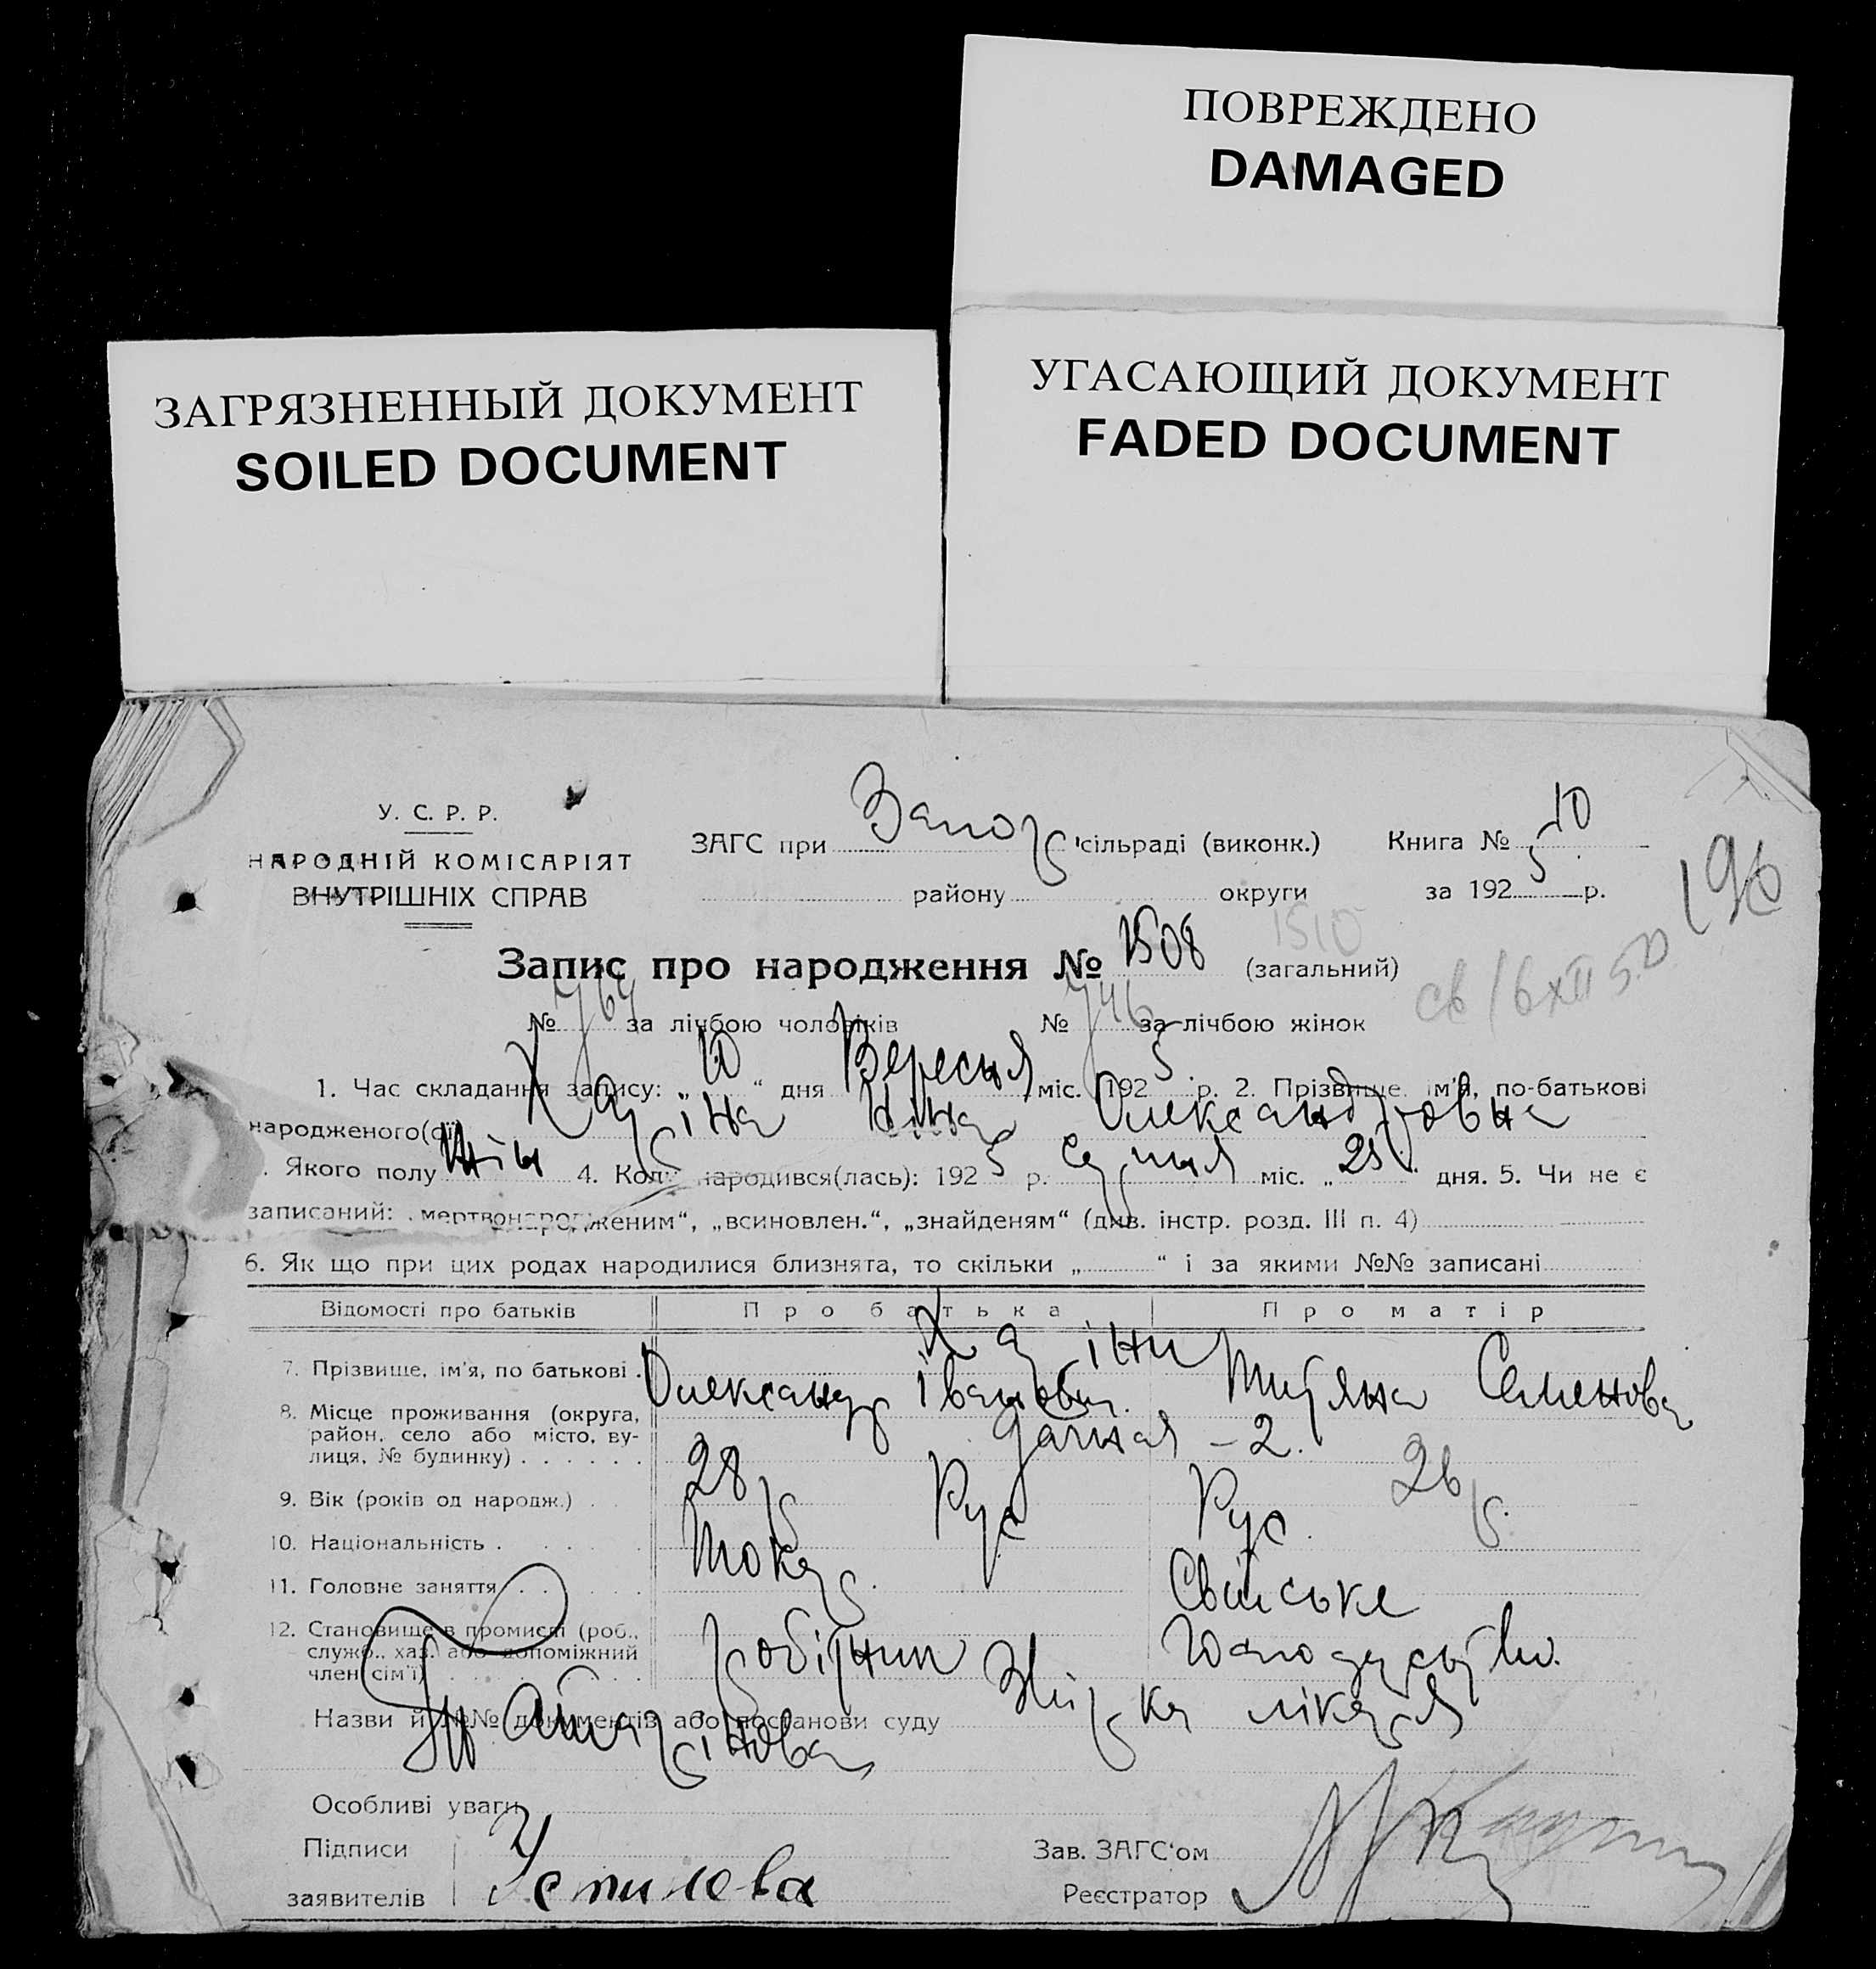 ПОВРЕЖДЕНО
DAMAGED
ЗАГРЯЗНЕННЫЙ ДОКУМЕНТ
SOILED DOCUMENT
УГАСАЮЩИЙ ДОКУМЕНТ
FADED DOCUMENT
У. С. Р. Р.
НАРОДНІЙ КОМІСАРІЯТ
ВНУТРІШНІХ СПРАВ
ЗАГС при Запор сільраді (виконк.) Книга № 10
району округи за 192 5 р.
196
1510
Запис про народження № 1508 (загальний)
св 16 XII 50
№ 764 за лічбою чоловіків № 746 за лічбою жінок
1. Час складання запису: „ 10 “ дня Вересня міс. 192 5 р. 2. Прізвище, ім'я, по-батькові
народженого(ої) Харіна Ніна Олександровна
Якого полу жін 4. Коли народився(лась): 192 5 р. Серпня міс. „ 25 “ дня. 5. Чи не є
записаний: „мертвонародженим“, „всиновлен.“, „знайденям“ (див. інстр. розд. III п. 4)
6. Як що при цих родах народилися близнята, то скільки „ “ і за якими №№ записані
Відомості про батьків Про батька Про матір
Харіни
7. Прізвище, ім'я, по батькові . Олександр Іванович Тетяна Семенова
8. Місце проживання (округа, район, село або місто, вулиця, № будинку) . . . . . . Дачная - 2.
9. Вік (років од народж.) . . 28 р 26 р.
10. Національність . . . . . Рус Рус.
11. Головне заняття . . . . . Токар. Свійське
12. Становище в промислі (роб., служб., хаз. або допоміжний член сім'ї) . . . . . . Робітник Господарство.
Назви й №№ документів або постанови суду Звірка лікаря
Особливі уваги
Підписи
заявителів Устинова
Зав. ЗАГС'ом
Реєстратор